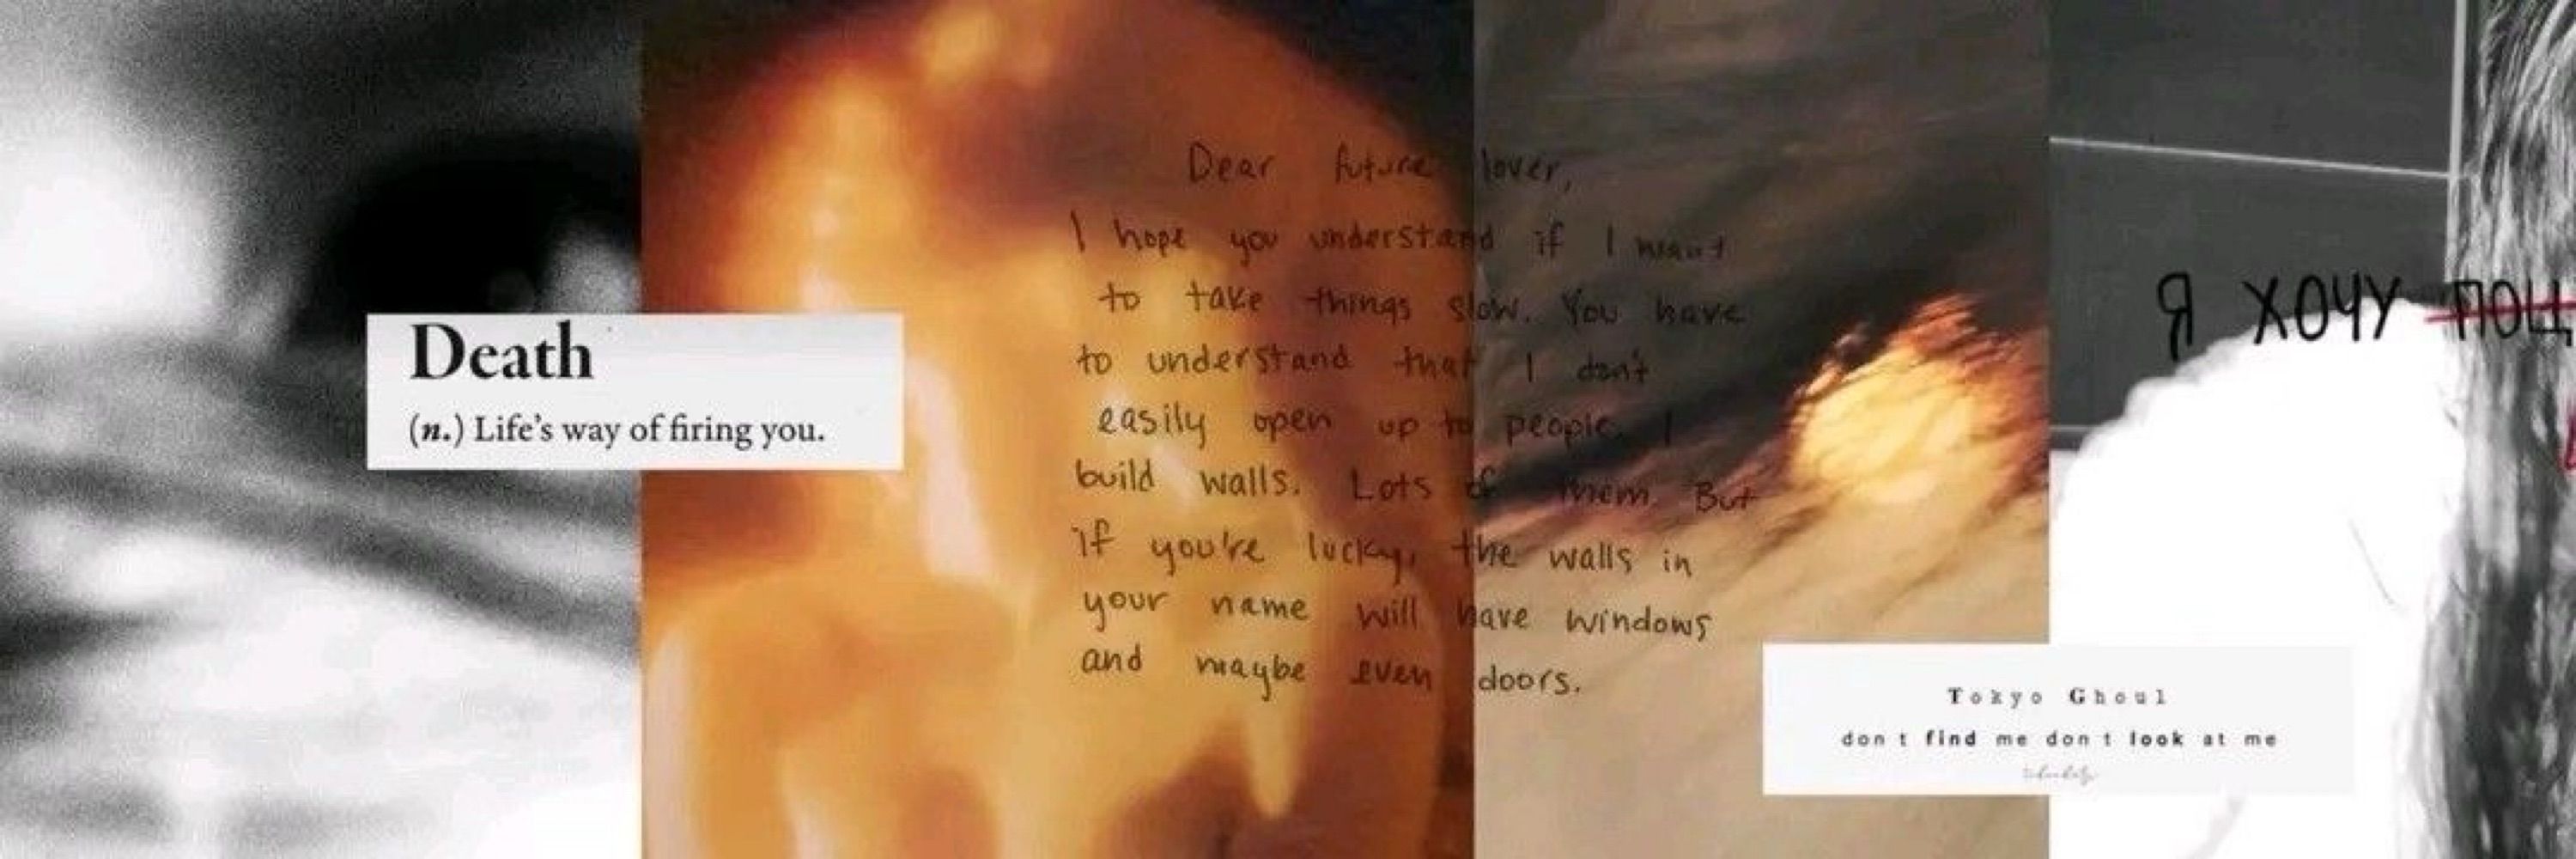 Death
(n.) Life's way of firing you.
Dear future lover,
I hope you understand if I want
to take things slow. You have
to understand that I don't
easily open up to people. I
build walls. Lots of them. But
if you're lucky, the walls in
your name will have windows
and maybe even doors.
Я ХОЧУ ПОЦ
Tokyo Ghoul
don t find me don t look at me